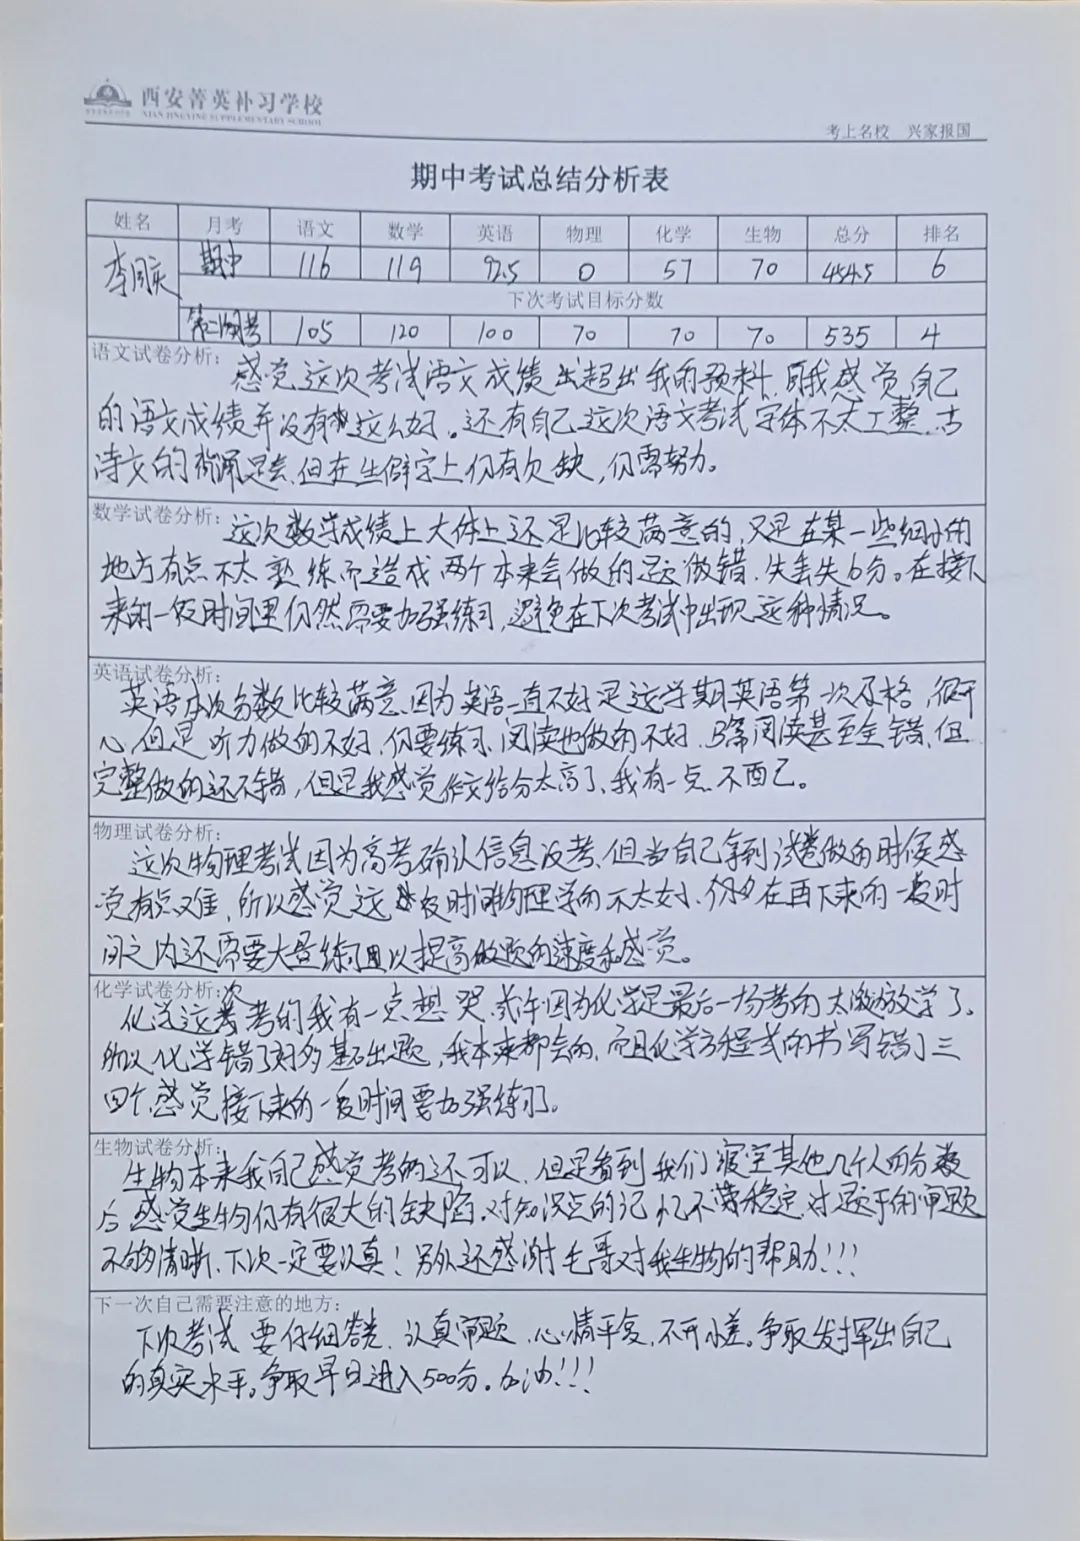 西安菁英补习学校
XIAN JINGYING SUPPLEMENTARY SCHOOL
考上名校 兴家报国
期中考试总结分析表
姓名 月考 语文 数学 英语 物理 化学 生物 总分 排名
李同庆 期中 116 119 92.5 0 57 70 454.5 6
下次考试目标分数
第二次月考 105 120 100 70 70 70 535 4
语文试卷分析：
感觉这次考试语文成绩出超出我的预料，因我感觉自己
的语文成绩并没有这么好。还有自己这次语文考试字体不太工整，古
诗文的背诵是会，但在生僻字上仍有欠缺，仍需努力。
数学试卷分析：
这次数学成绩上大体上还是比较满意的，只是在某一些细小的
地方有点不太熟练而造成两个本来会做的是做错，失丢失6分。在接下
来的一段时间里仍然需要加强练习，避免在下次考试中出现这种情况。
英语试卷分析：
英语本次分数比较满意，因为英语一直不好是这学期英语第一次及格，很开
心，但是听力做的不好，仍要练习，阅读也做的不好，B篇阅读甚至全错，但
完整做的还不错，但是我感觉作文给分太高了，我有一点不配。
物理试卷分析：
这次物理考试因为高考确认信息没考，但当自己拿到试卷做的时候感
觉有点难，所以感觉这段时间物理学的不太好，仍在再下来的一段时
间之内还需要大量练习题以提高做题的速度和感觉。
化学试卷分析：
化学这次考的我有一点想哭，或许因为化学是最后一场考的太激动放学了。
所以化学错了好多基础题，我本来都会的，而且化学方程式的书写错了三
四个，感觉接下来的一段时间要加强练习了。
生物试卷分析：
生物本来我自己感觉考的还可以，但是看到我们寝室其他几个人的分数
后感觉生物仍有很大的缺陷，对知识点的记忆不够稳定，对题干的审题
不够清晰，下次一定要认真！另外还感谢毛哥对我生物的帮助！！！
下一次自己需要注意的地方：
下次考试要仔细答卷，认真审题，心情平复，不开小差。争取发挥出自己
的真实水平。争取早日进入500分。加油！！！